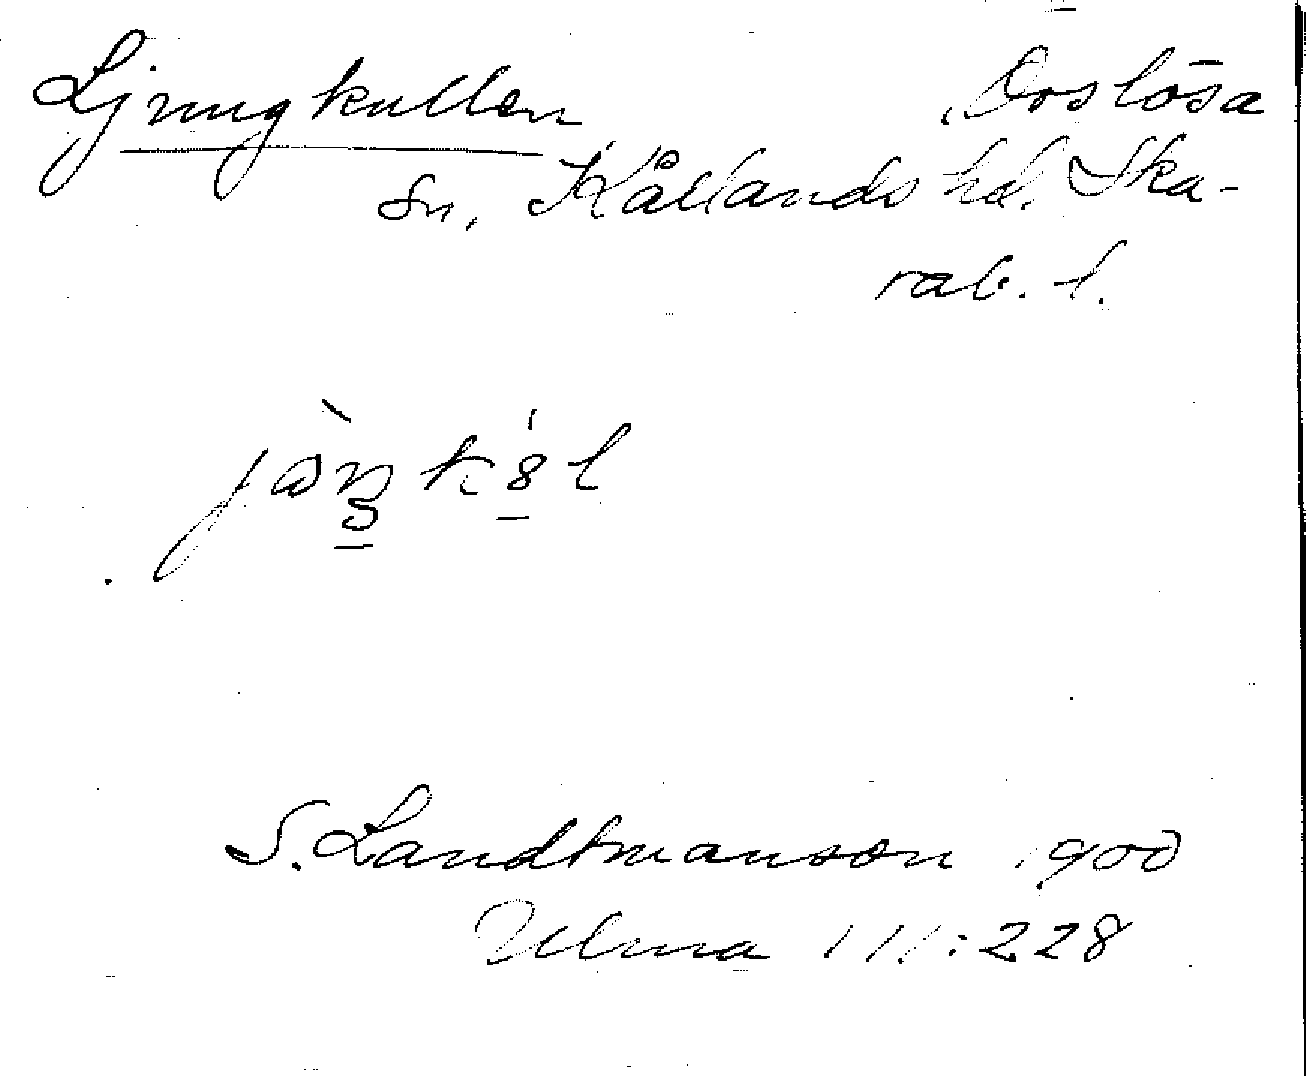 Ljungkullen Örslösa
sn, Kållands hd. Ska-
rab. l.
S. Landtmanson 1900
Ulma 111:228